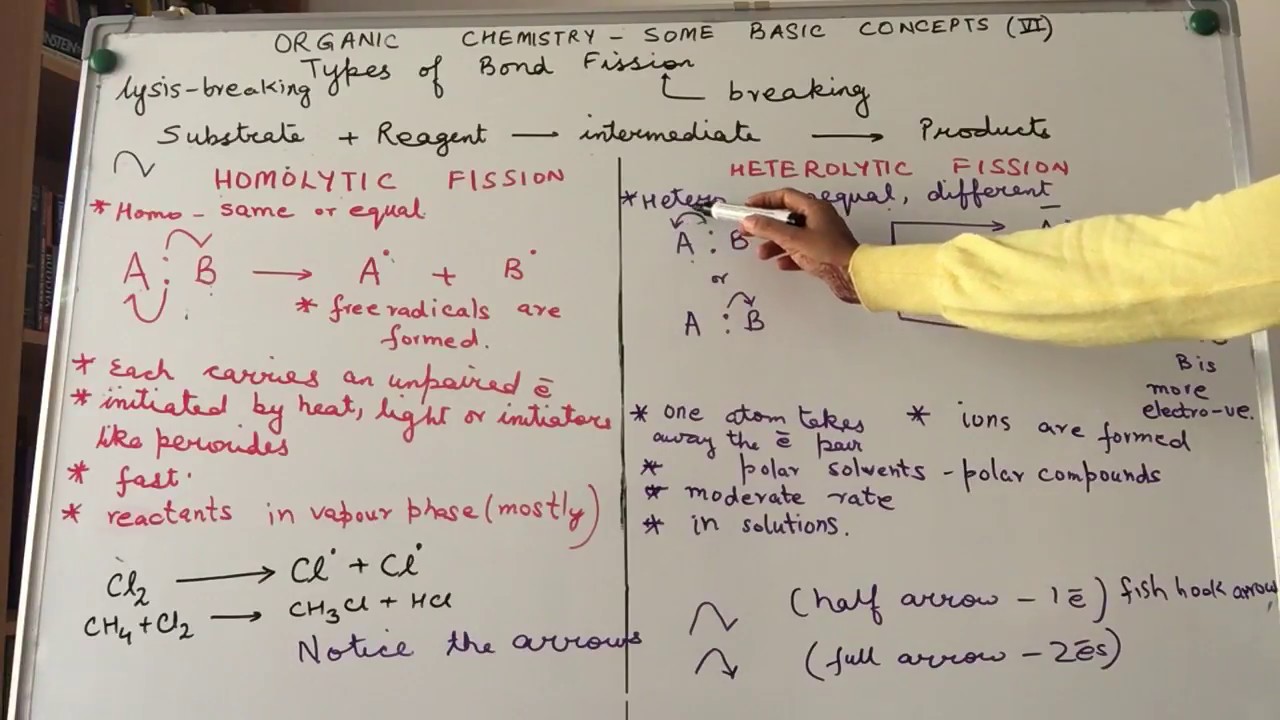 ORGANIC CHEMISTRY - SOME BASIC CONCEPTS (VI)
Types of Bond Fission
lysis-breaking
breaking
Substrate + Reagent — intermediate → Products
HOMOLYTIC FISSION
* Homo - same or equal
A : B → A• + B•
* free radicals are
formed.
* Each carries an unpaired ē
* initiated by heat, light or initiators
like peroxides
* fast.
* reactants in vapour phase (mostly)
Cl2 → Cl• + Cl•
CH4 + Cl2 → CH3Cl + HCl
Notice the arrows
HETEROLYTIC FISSION
equal, different
A : B
or
A : B
B is
more
electro-ve.
* one atom takes
away the ē pair
* ions are formed
* polar solvents - polar compounds
* moderate rate
* in solutions.
(half arrow - 1ē) fish hook arrow
(full arrow - 2ēs)